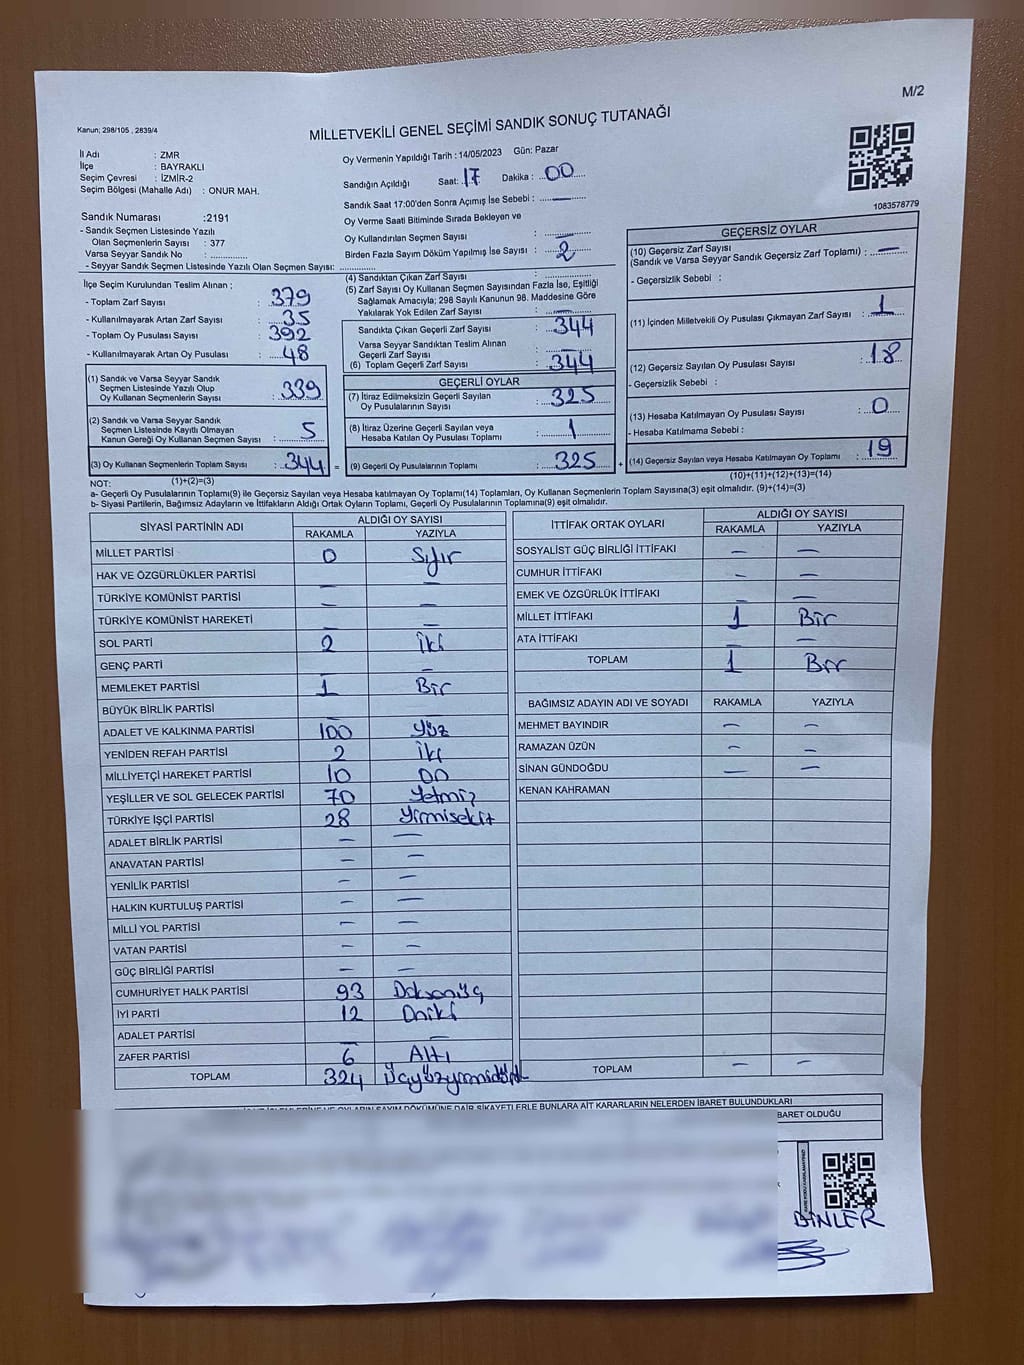 M/2
Kanun; 298/105 , 2839/4
MİLLETVEKİLİ GENEL SEÇİMİ SANDIK SONUÇ TUTANAĞI
İl Adı : ZMR
İlçe : BAYRAKLI
Seçim Çevresi : İZMİR-2
Seçim Bölgesi (Mahalle Adı) : ONUR MAH.
Sandık Numarası :2191
- Sandık Seçmen Listesinde Yazılı
Olan Seçmenlerin Sayısı : 377
Varsa Seyyar Sandık No : ..............
- Seyyar Sandık Seçmen Listesinde Yazılı Olan Seçmen Sayısı: ..............
Oy Vermenin Yapıldığı Tarih : 14/05/2023 Gün: Pazar
Sandığın Açıldığı Saat: 17 Dakika : 00
Sandık Saat 17:00'den Sonra Açımış İse Sebebi : —
Oy Verme Saati Bitiminde Sırada Bekleyen ve
Oy Kullandırılan Seçmen Sayısı : —
Birden Fazla Sayım Döküm Yapılmış İse Sayısı : 2
1083578779
İlçe Seçim Kurulundan Teslim Alınan ;
- Toplam Zarf Sayısı : 379
- Kullanılmayarak Artan Zarf Sayısı : 35
- Toplam Oy Pusulası Sayısı : 392
- Kullanılmayarak Artan Oy Pusulası : 48
(1) Sandık ve Varsa Seyyar Sandık
Seçmen Listesinde Yazılı Olup
Oy Kullanan Seçmenlerin Sayısı : 339
(2) Sandık ve Varsa Seyyar Sandık
Seçmen Listesinde Kayıtlı Olmayan
Kanun Gereği Oy Kullanan Seçmen Sayısı : 5
(3) Oy Kullanan Seçmenlerin Toplam Sayısı : 344 =
(1)+(2)=(3)
(4) Sandıktan Çıkan Zarf Sayısı :
(5) Zarf Sayısı Oy Kullanan Seçmen Sayısından Fazla İse, Eşitliği
Sağlamak Amacıyla; 298 Sayılı Kanunun 98. Maddesine Göre
Yakılarak Yok Edilen Zarf Sayısı : —
Sandıkta Çıkan Geçerli Zarf Sayısı : 344
Varsa Seyyar Sandıktan Teslim Alınan
Geçerli Zarf Sayısı :
(6) Toplam Geçerli Zarf Sayısı : 344
GEÇERLİ OYLAR
(7) İtiraz Edilmeksizin Geçerli Sayılan
Oy Pusulalarının Sayısı : 325
(8) İtiraz Üzerine Geçerli Sayılan veya
Hesaba Katılan Oy Pusulası Toplamı : 1
(9) Geçerli Oy Pusulalarının Toplamı : 325 +
GEÇERSİZ OYLAR
(10) Geçersiz Zarf Sayısı
(Sandık ve Varsa Seyyar Sandık Geçersiz Zarf Toplamı) : —
- Geçersizlik Sebebi :
(11) İçinden Milletvekili Oy Pusulası Çıkmayan Zarf Sayısı : 1
(12) Geçersiz Sayılan Oy Pusulası Sayısı : 18
- Geçersizlik Sebebi :
(13) Hesaba Katılmayan Oy Pusulası Sayısı : 0
- Hesaba Katılmama Sebebi :
(14) Geçersiz Sayılan veya Hesaba Katılmayan Oy Toplamı : 19
(10)+(11)+(12)+(13)=(14)
NOT:
a- Geçerli Oy Pusulalarının Toplamı(9) ile Geçersiz Sayılan veya Hesaba katılmayan Oy Toplamı(14) Toplamları, Oy Kullanan Seçmenlerin Toplam Sayısına(3) eşit olmalıdır. (9)+(14)=(3)
b- Siyasi Partilerin, Bağımsız Adayların ve İttifakların Aldığı Ortak Oyların Toplamı, Geçerli Oy Pusulalarının Toplamına(9) eşit olmalıdır.
SİYASİ PARTİNİN ADI ALDIĞI OY SAYISI
RAKAMLA YAZIYLA
MİLLET PARTİSİ 0 Sıfır
HAK VE ÖZGÜRLÜKLER PARTİSİ — —
TÜRKİYE KOMÜNİST PARTİSİ — —
TÜRKİYE KOMÜNİST HAREKETİ — —
SOL PARTİ 2 İki
GENÇ PARTİ — —
MEMLEKET PARTİSİ 1 Bir
BÜYÜK BİRLİK PARTİSİ
ADALET VE KALKINMA PARTİSİ 100 Yüz
YENİDEN REFAH PARTİSİ 2 İki
MİLLİYETÇİ HAREKET PARTİSİ 10 On
YEŞİLLER VE SOL GELECEK PARTİSİ 70 Yetmiş
TÜRKİYE İŞÇİ PARTİSİ 28 Yirmisekiz
ADALET BİRLİK PARTİSİ — —
ANAVATAN PARTİSİ — —
YENİLİK PARTİSİ — —
HALKIN KURTULUŞ PARTİSİ — —
MİLLİ YOL PARTİSİ — —
VATAN PARTİSİ — —
GÜÇ BİRLİĞİ PARTİSİ — —
CUMHURİYET HALK PARTİSİ 93 Doksanüç
İYİ PARTİ 12 Oniki
ADALET PARTİSİ — —
ZAFER PARTİSİ 6 Altı
TOPLAM 324 Üçyüzyirmidört
İTTİFAK ORTAK OYLARI ALDIĞI OY SAYISI
RAKAMLA YAZIYLA
SOSYALİST GÜÇ BİRLİĞİ İTTİFAKI — —
CUMHUR İTTİFAKI — —
EMEK VE ÖZGÜRLÜK İTTİFAKI — —
MİLLET İTTİFAKI 1 Bir
ATA İTTİFAKI — —
TOPLAM 1 Bir
BAĞIMSIZ ADAYIN ADI VE SOYADI RAKAMLA YAZIYLA
MEHMET BAYINDIR — —
RAMAZAN ÜZÜN — —
SİNAN GÜNDOĞDU — —
KENAN KAHRAMAN
TOPLAM — —
VE OYLARIN SAYIM DÖKÜMÜNE DAİR ŞİKAYETLERLE BUNLARA AİT KARARLARIN NELERDEN İBARET BULUNDUKLARI
BARET OLDUĞU
BİNLER